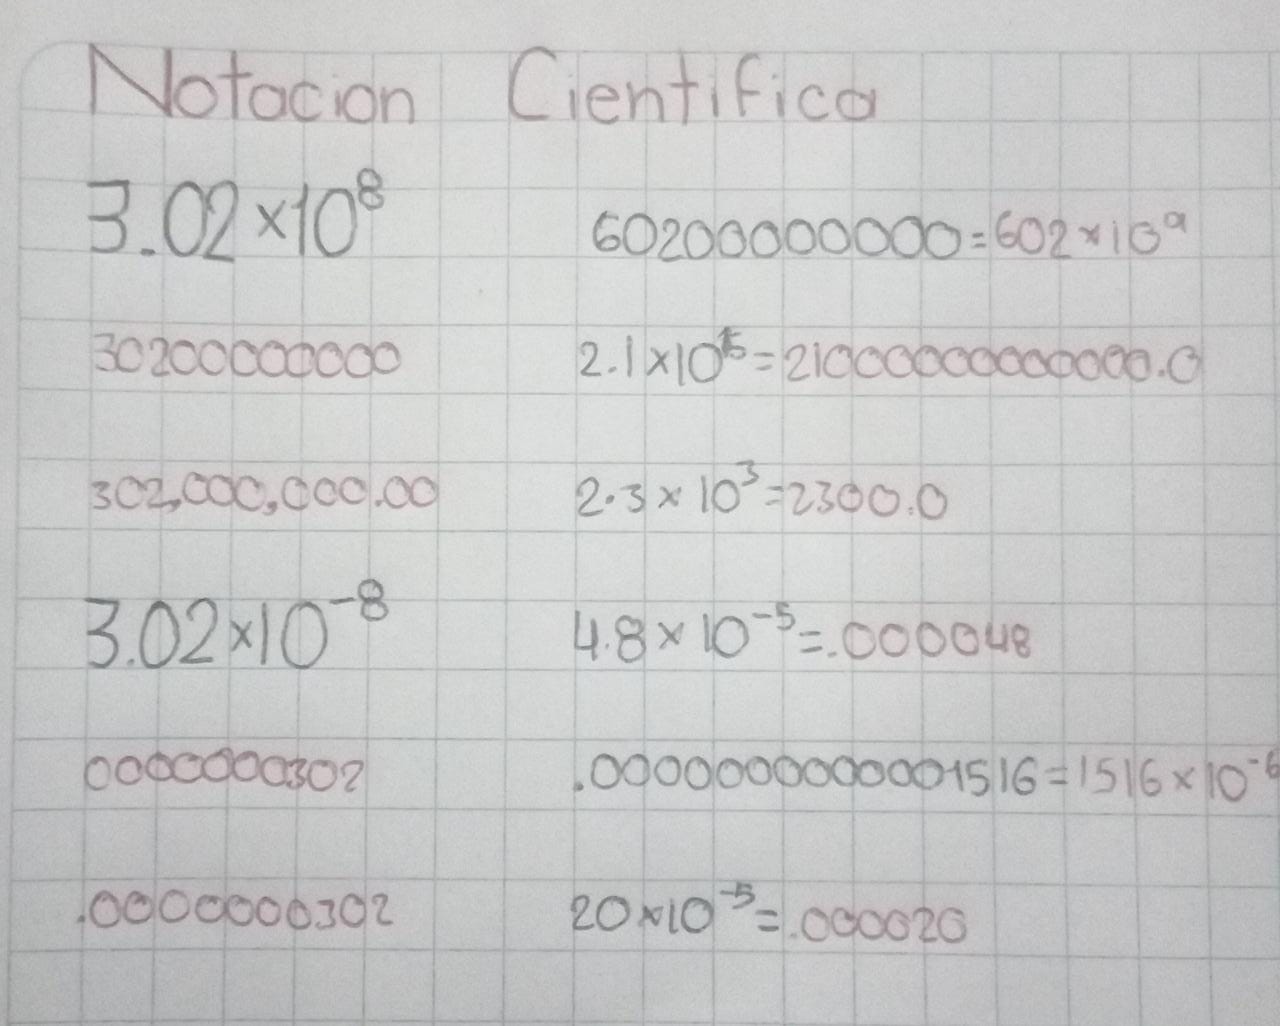 Notacion Cientifica
3.02×10⁸
602000000000=602×10⁹
30200000000
2.1×10¹⁵=2100000000000000.0
302,000,000.00
2.3×10³=2300.0
3.02×10⁻⁸
4.8×10⁻⁵=.000048
0000000302
.0000000000001516=1516×10⁻⁶
.0000000302
20×10⁻⁵=.000020